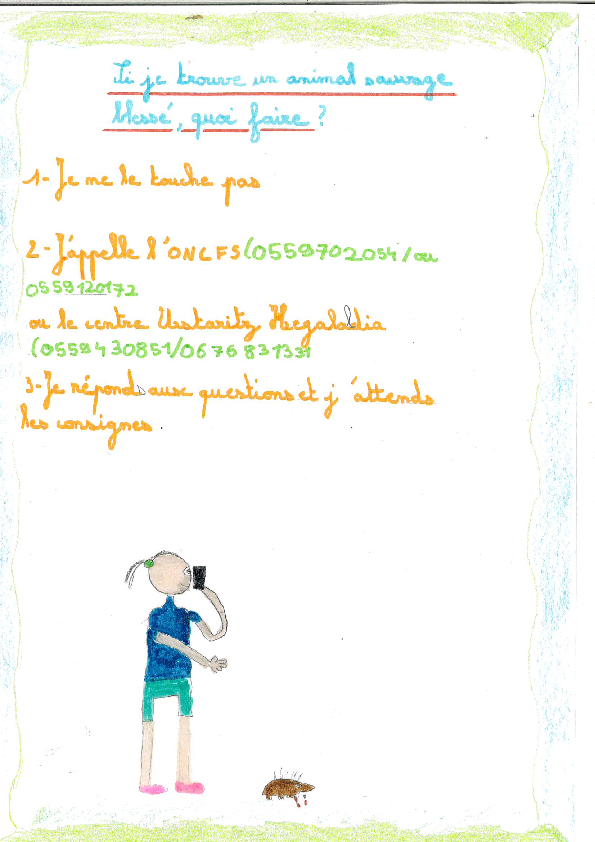 Si je trouve un animal sauvage
blessé, quoi faire ?
1- Je me le touche pas
2- J'appelle l'ONCFS (0559702054/ou
0559120172
ou le centre Ustaritz Hegalaldia
(0559430851/0676831331
3- Je réponds aux questions et j'attends
les consignes.